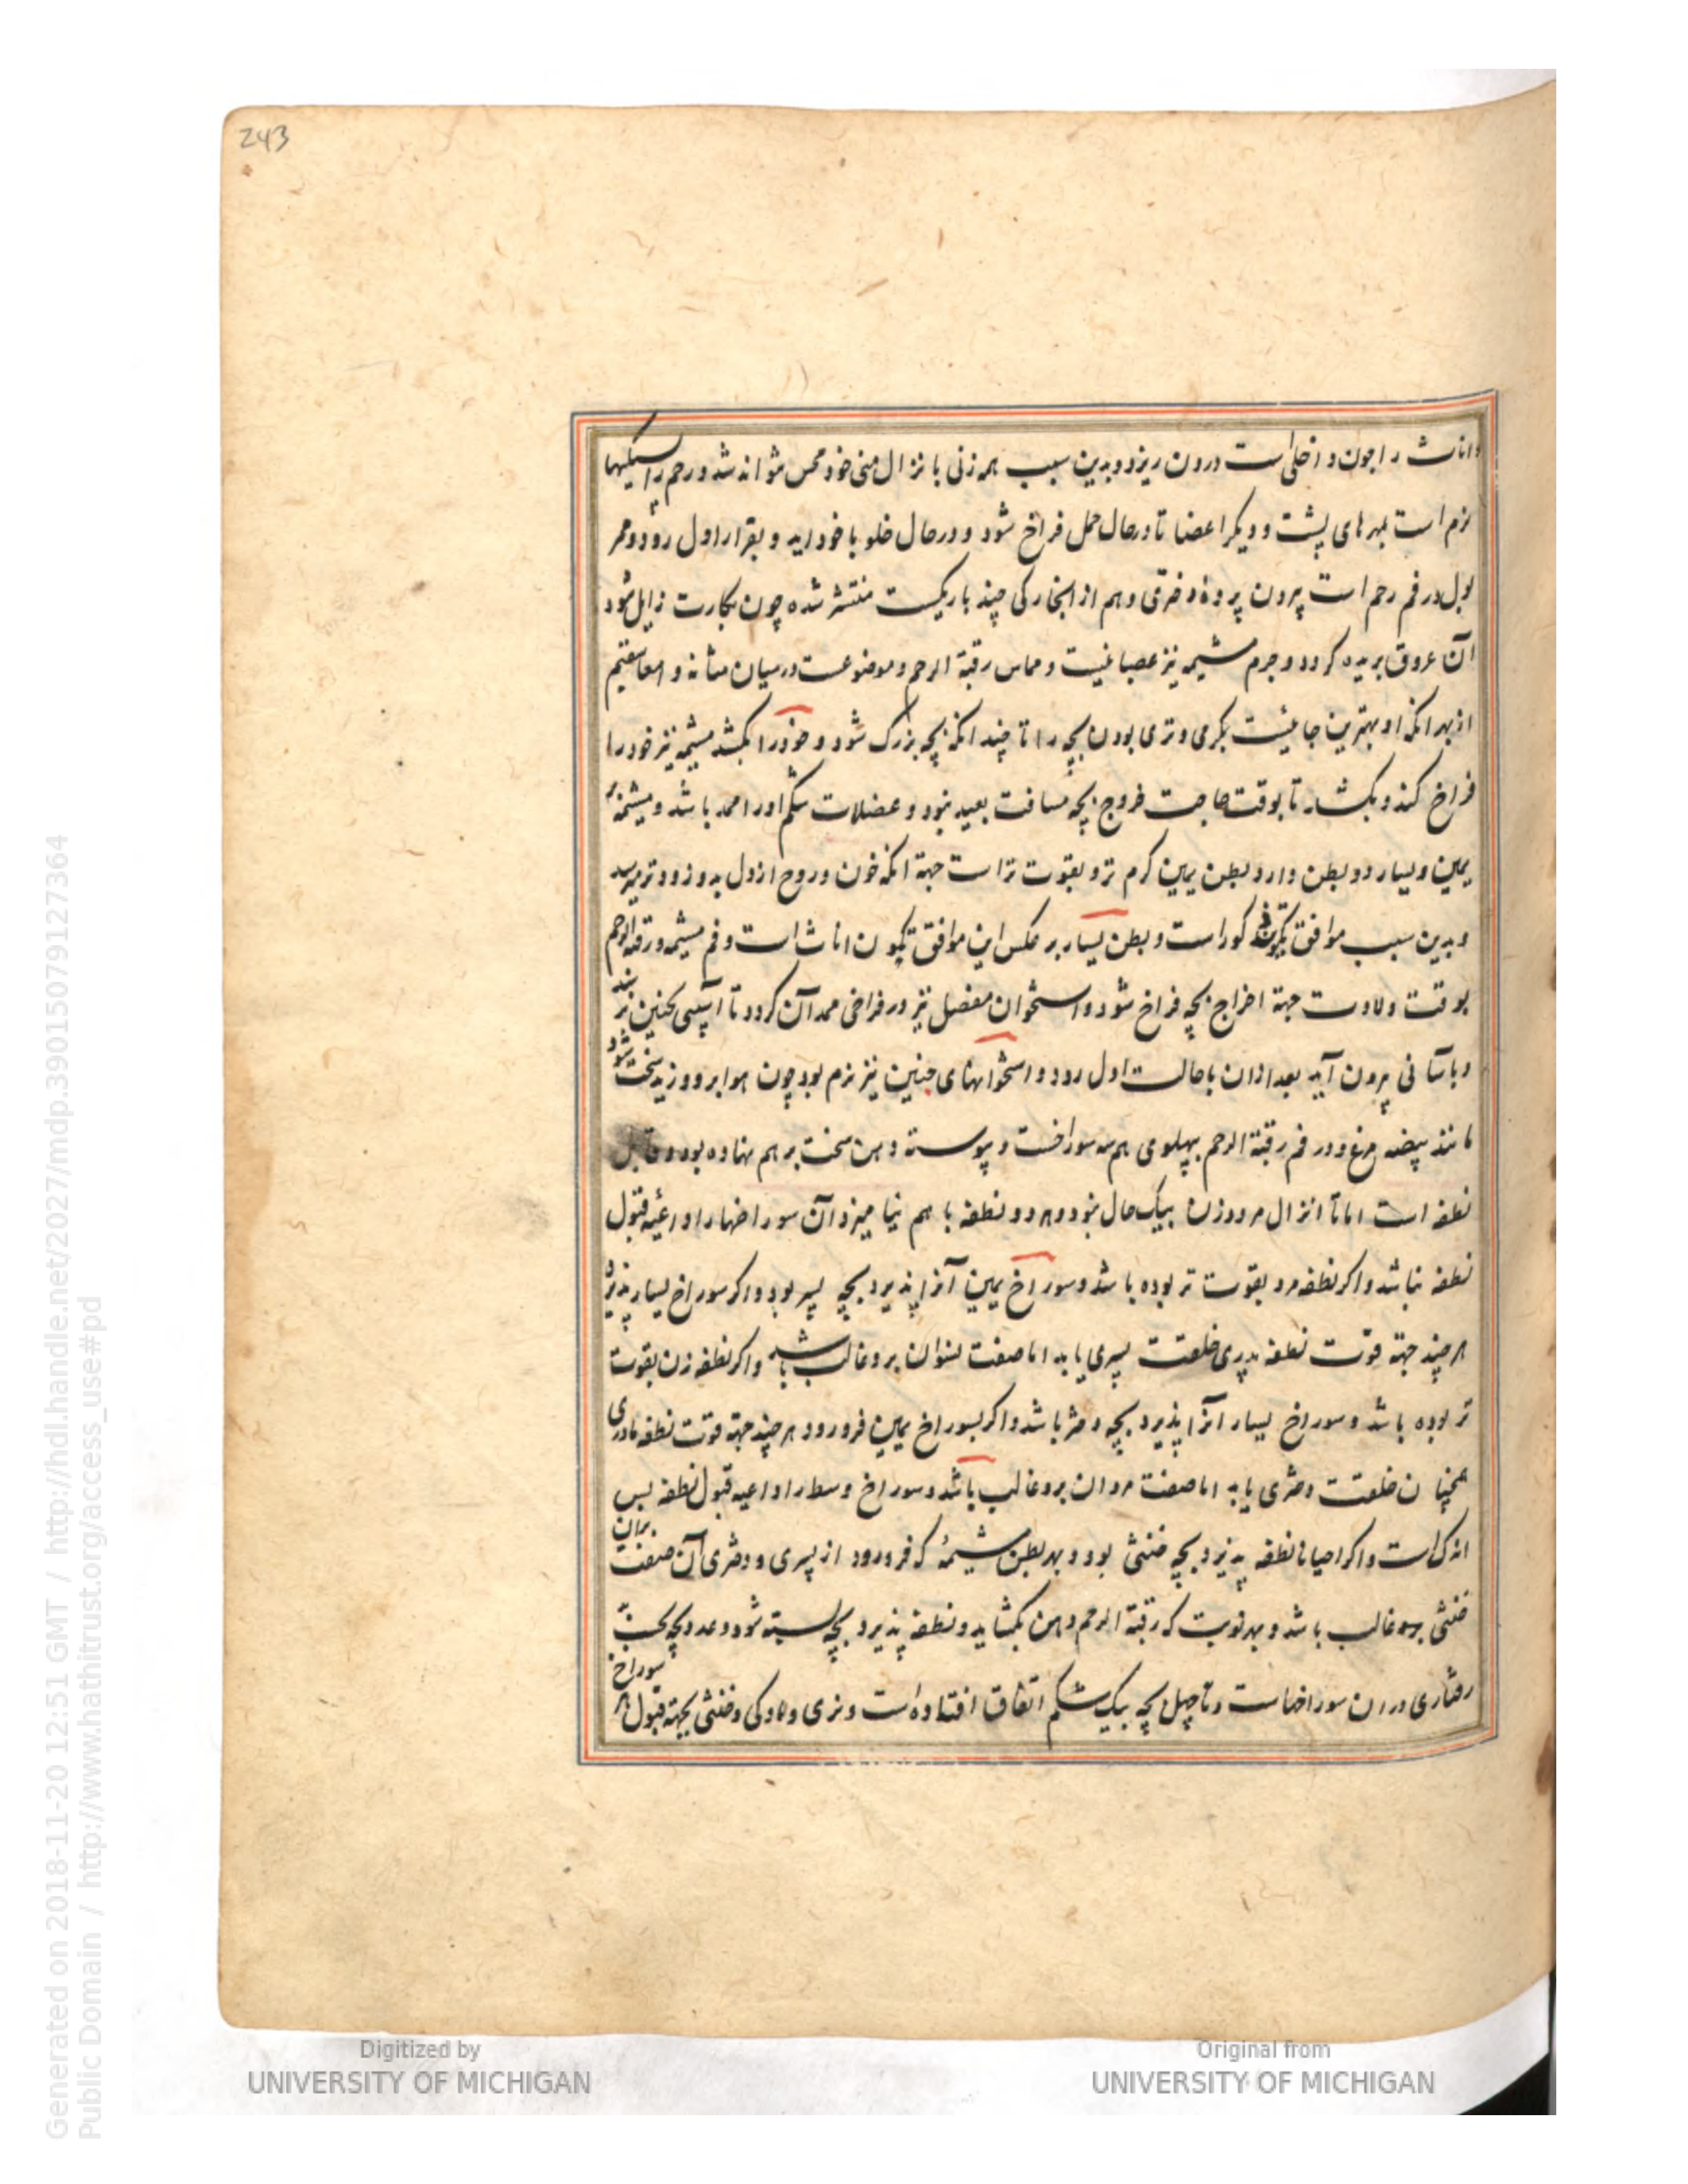 243
واناث را چون داخلی است درون ریزد و بدین سبب همه زنی با نزال منی خود محس نتواند شد و رحم را سلیها
نرم است بمهرهای پشت و دیگر اعضا تا در حال حمل فراخ شود و در حال خلو با خود اید و بقرار اول رود و ممر
بول در فم رحم است بیرون پردهٔ دختری و هم از انجا رکی چند باریکست منتشر شده چون بکارت زایل شود
آن عروق بریده کردد و جرم مشیمه نیز عصبانیست و مماس رقبة الرحم و موضوعست در میان مثانه و امعا مستقیم
از بهر انکه او بهترین جائیست بکرمی و نرمی بودن بچه را تا چند انکه بچه بزرک شود و خود را بکشد مشیمه نیز خود را
فراخ کند و بکشد تا بوقت حاجت خروج بچه مسافت بعید نبود و عضلات شکم اورا ممد باشد و مشیمهٔ
یمین و یسار دو بطن دارد بطن یمین کرم تر و بقوت تر است جهة انکه خون و روح از دل بدو زودتر میرسد
و بدین سبب موافق تکون ذکور است و بطن یسار بر عکس این موافق تکون اناث است و فم مشیمه و رقبة الرحم
بوقت ولادت جهة اخراج بچه فراخ شود و استخوان مفصل نیز در فراخی ممد آن کردد تا آسیبی بجنین نرسد
و باسانی بیرون آید بعد ازان با حالت اول رود و استخوانهای جنین نیز نرم بود چون هوا برو وزید سخت شود
مانند بیضه مرغ و در فم رقبة الرحم بپهلوی هم سه سوراخست و پیوسته دهن سخت بر هم نهاده بود و قابل
نطفه است اما تا انزال مرد و زن بیک حال نبود و هر دو نطفه با هم نیامیزد آن سوراخها را داعیهٔ قبول
نطفه نباشد و اکر نطفه مرد بقوت تر بوده باشد و سوراخ یمین آنرا پذیرد بچه پسر بود و اکر سوراخ یسار پذیرد
هر چند جهة قوت نطفه پدری خلعت پسری یابد اما صفت نسوان برو غالب باشد و اکر نطفه زن بقوت
تر بوده باشد و سوراخ یسار انرا پذیرد بچه دختر باشد و اکر بسوراخ یمین فرو رود هر چند جهة قوت نطفه مادری
همچنان خلعت دختری یابد اما صفت مردان برو غالب باشد و سوراخ وسط را داعیه قبول نطفه بس
اندک است و اکر احیانا نطفه پذیرد بچه خنثی بود و بهر بطن مشیمهٔ که فرو رود از پسری و دختری آن صفت بران
خنثی برو غالب باشد و بهر نوبت که رقبة الرحم دهن بکشاید و نطفه پذیرد بچه بسته شود و عدد بچه بحسب
رفتاری دران سوراخهاست و تا چهل بچه بیک شکم اتفاق افتاده است و نری و مادکی و خنثی بجهة قبول هر سوراخ
Digitized by
UNIVERSITY OF MICHIGAN
Original from
UNIVERSITY OF MICHIGAN
Generated on 2018-11-20 12:51 GMT / http://hdl.handle.net/2027/mdp.39015079127364
Public Domain / http://www.hathitrust.org/access_use#pd